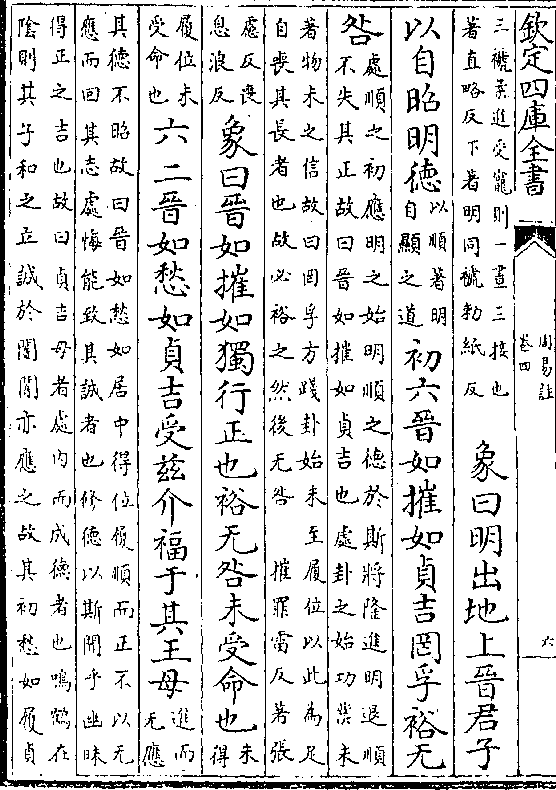 欽定四庫全書
周易註
卷四
六
三褫柔進受寵則一晝三接也
著直略反下著明同褫勑紙反
象曰明出地上晉君子
以自昭明德
以順著明
自顯之道
初六晉如摧如貞吉罔孚裕无
咎
處順之初應明之始明順之德於斯將隆進明退順
不失其正故曰晉如摧如貞吉也處卦之始功業未
著物未之信故曰罔孚方踐卦始未至履位以此為足
自喪其長者也故必裕之然後无咎 摧罪雷反著張
慮反喪
息浪反
象曰晉如摧如獨行正也裕无咎未受命也
未得
履位未
受命也
六二晉如愁如貞吉受茲介福于其王母
進而
无應
其德不昭故曰晉如愁如居中得位履順而正不以无
應而回其志處晦能致其誠者也修德以斯聞乎幽昧
得正之吉也故曰貞吉母者處内而成德者也鳴鶴在
陰則其子和之立誠於闇闇亦應之故其初愁如履貞